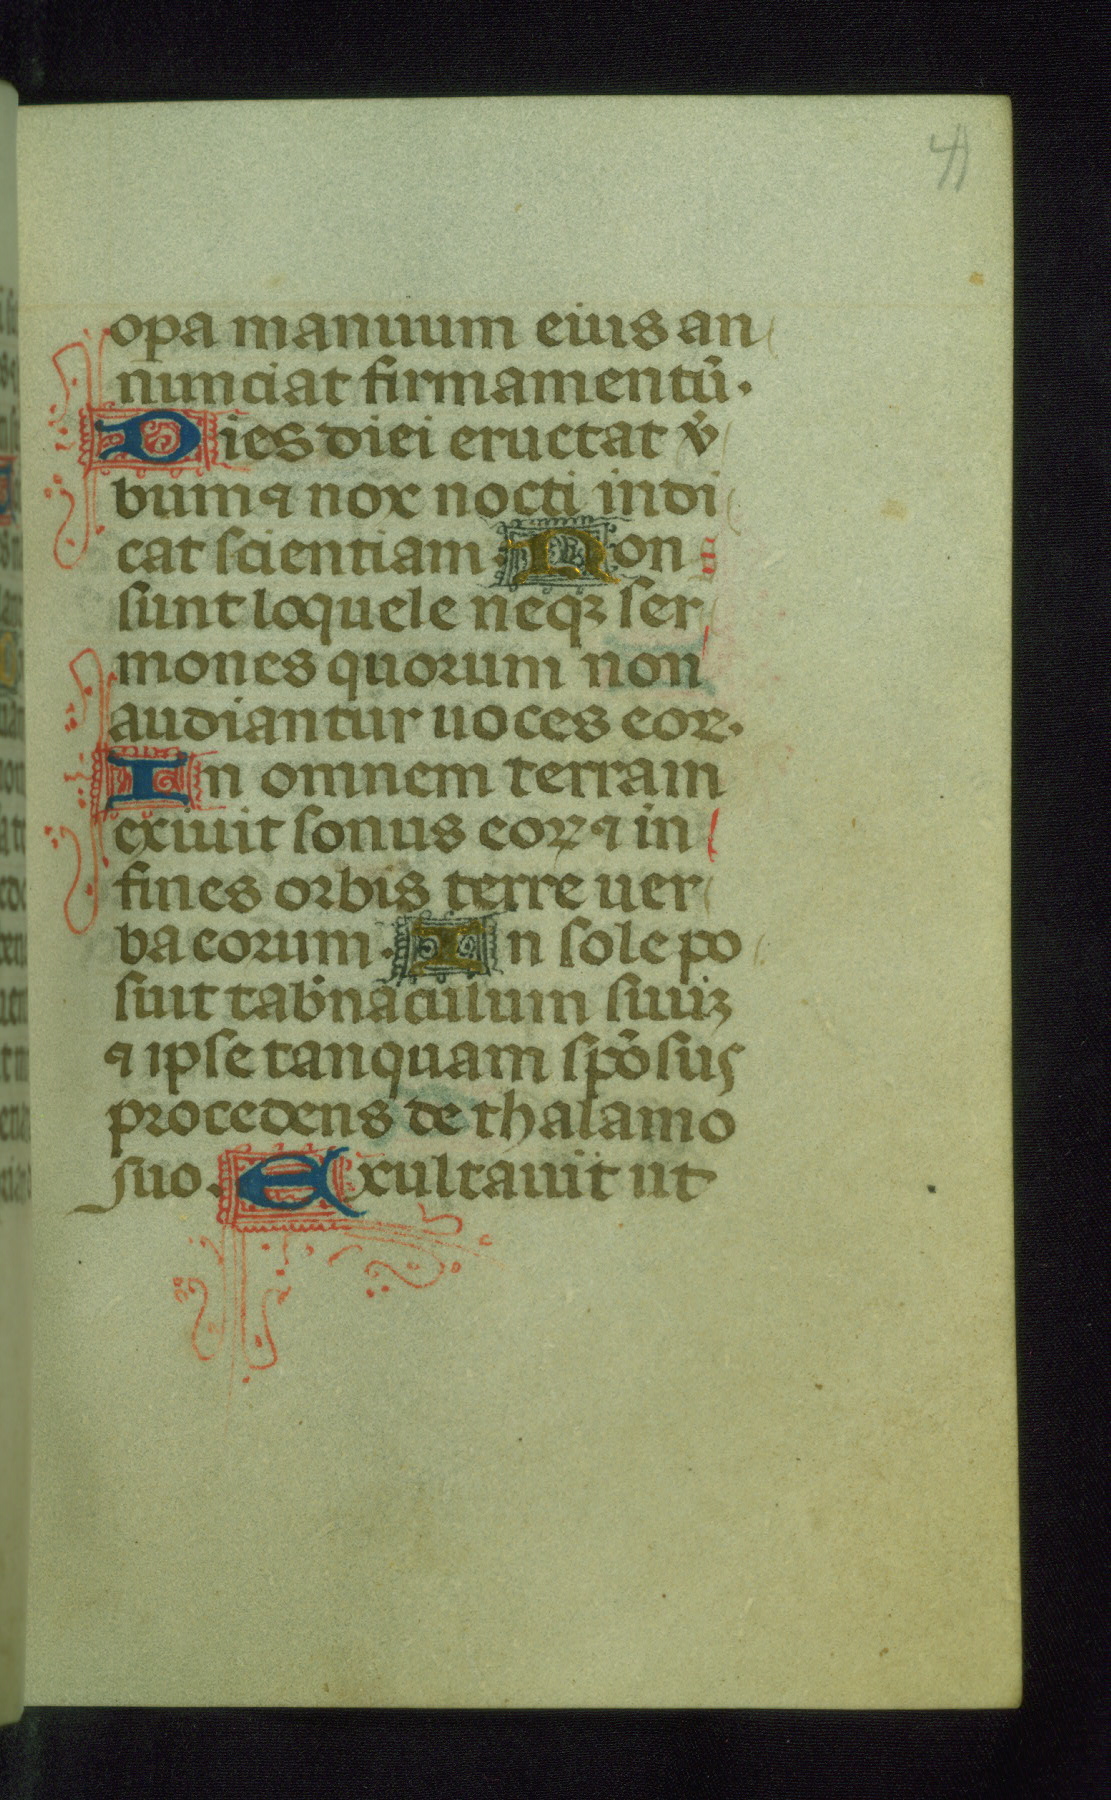 41
opa manuum eius an
nunciat firmamentū.
Dies diei eructat v̄
bum ⁊ nox nocti indi
cat scientiam. Non
sunt loquele neqꝫ ser
mones quorum non
audiantur uoces eoꝝ.
In omnem terram
exiuit sonus eoꝝ ⁊ in
fines orbis terre uer
ba eorum. In sole po
suit tab̄naculum suuꝫ
⁊ ipse tanquam spōsus
procedens de thalamo
suo. Exultauit ut